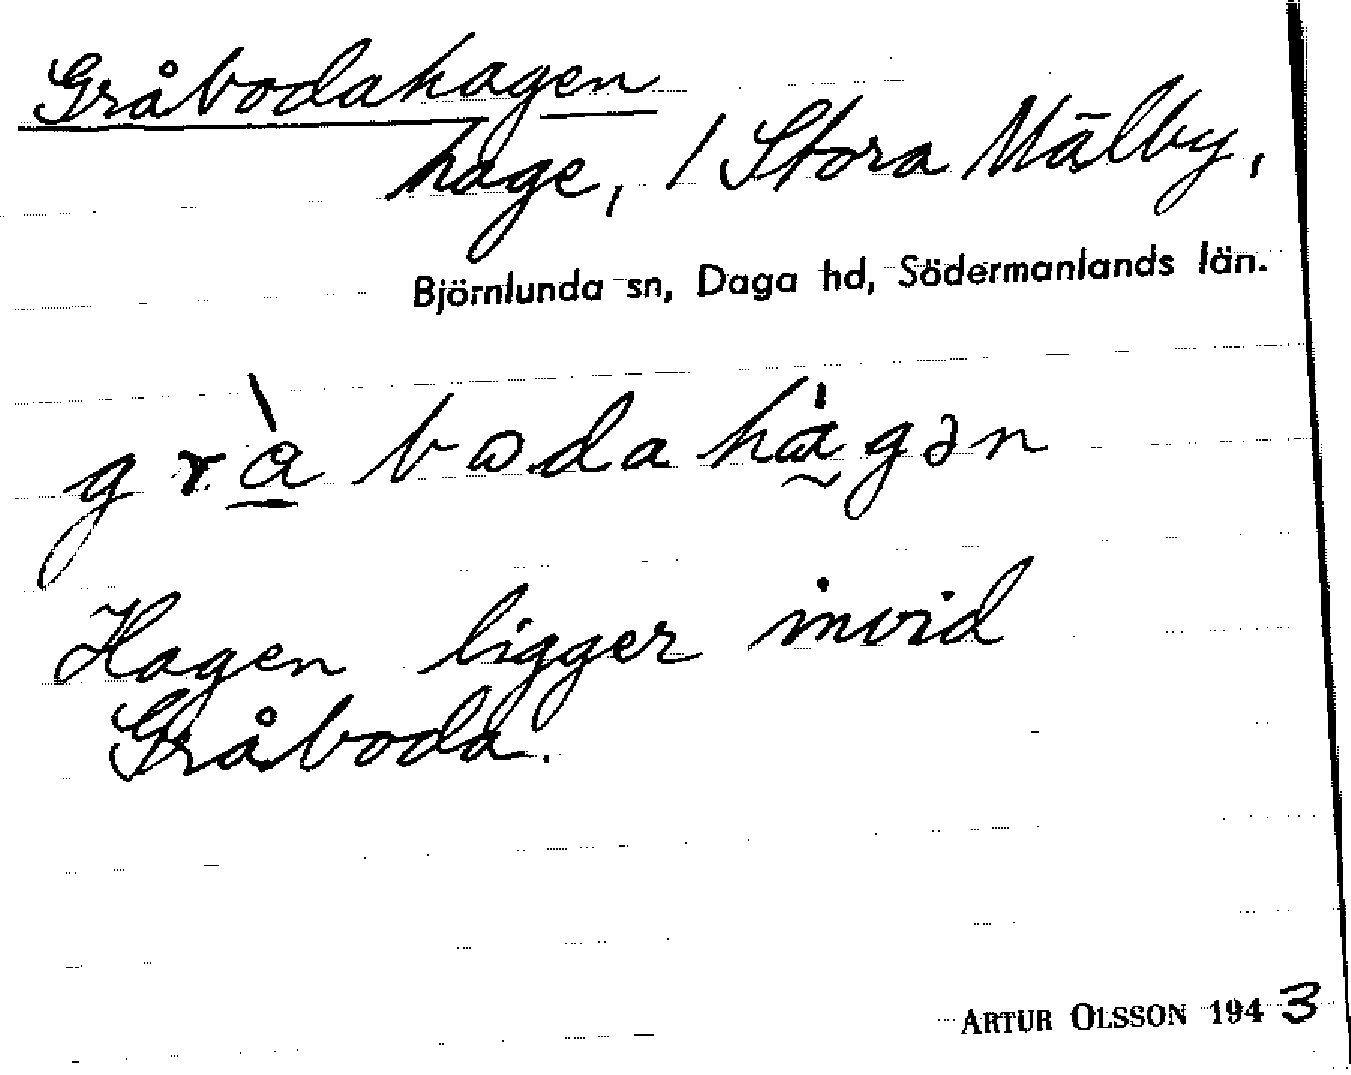 Gråbodahagen
hage, / Stora Mälby,
Björnlunda sn, Daga hd, Södermanlands län.
gràbodahàgən
Hagen ligger invid
Gråboda.
ARTUR OLSSON 1943